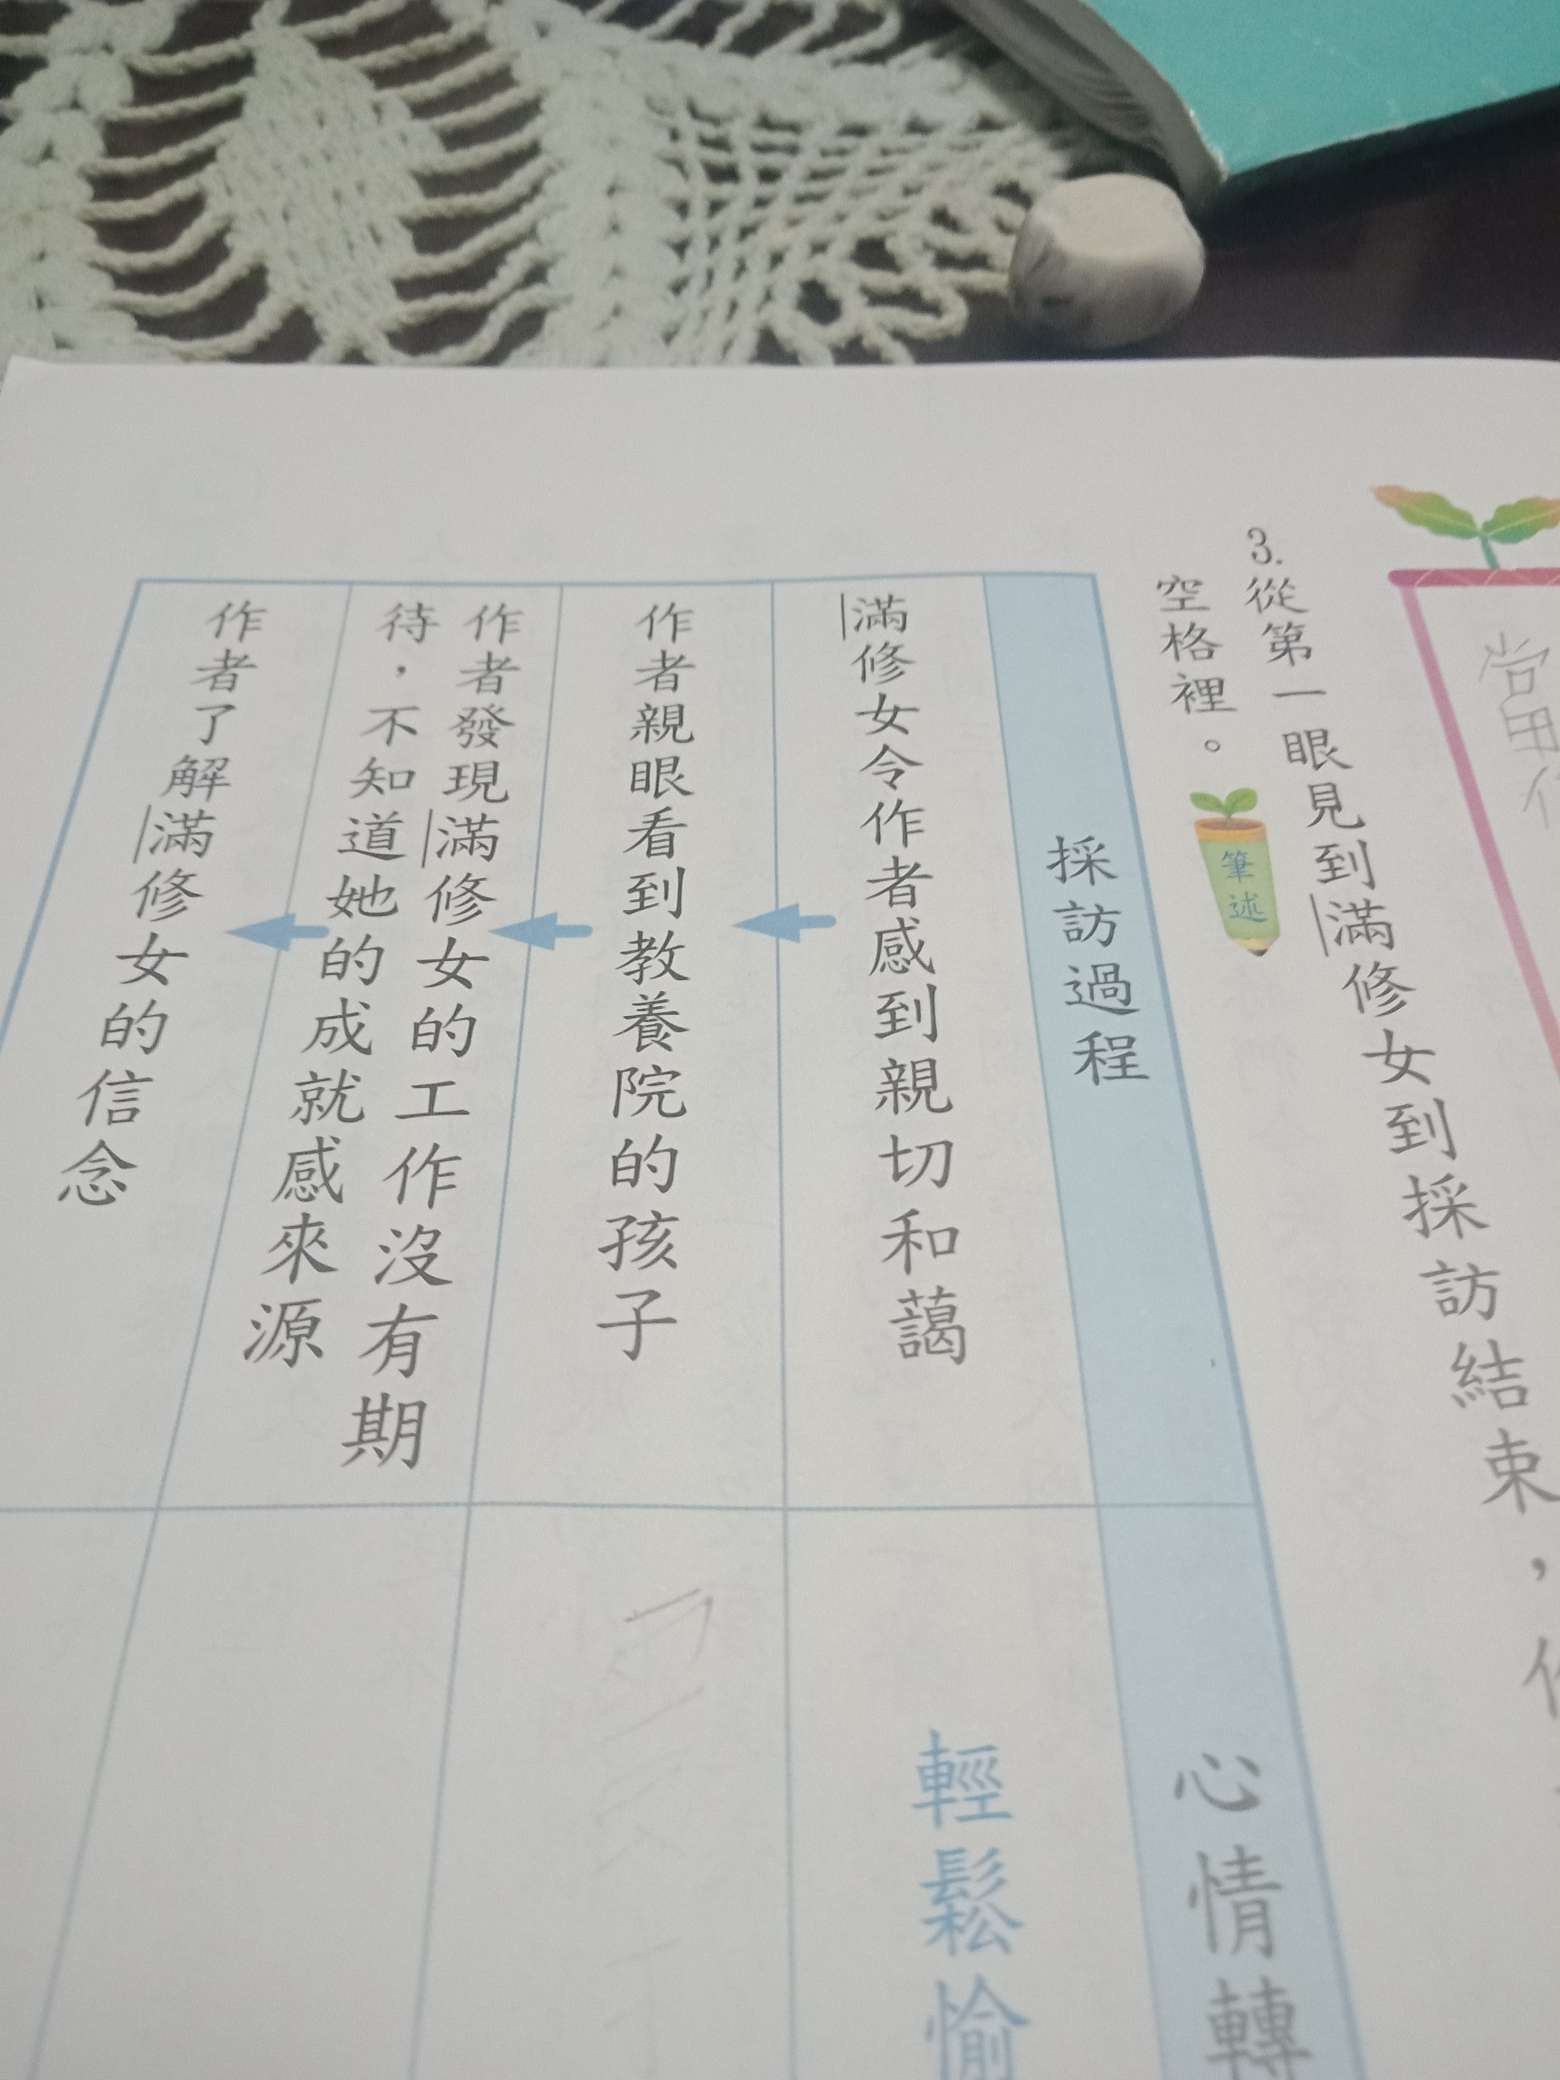 當
3.從第一眼見到滿修女到採訪結束，
空格裡。
筆述
採訪過程
心情轉
滿修女令作者感到親切和藹
輕鬆愉
作者親眼看到教養院的孩子
作者發現滿修女的工作沒有期
待，不知道她的成就感來源
作者了解滿修女的信念